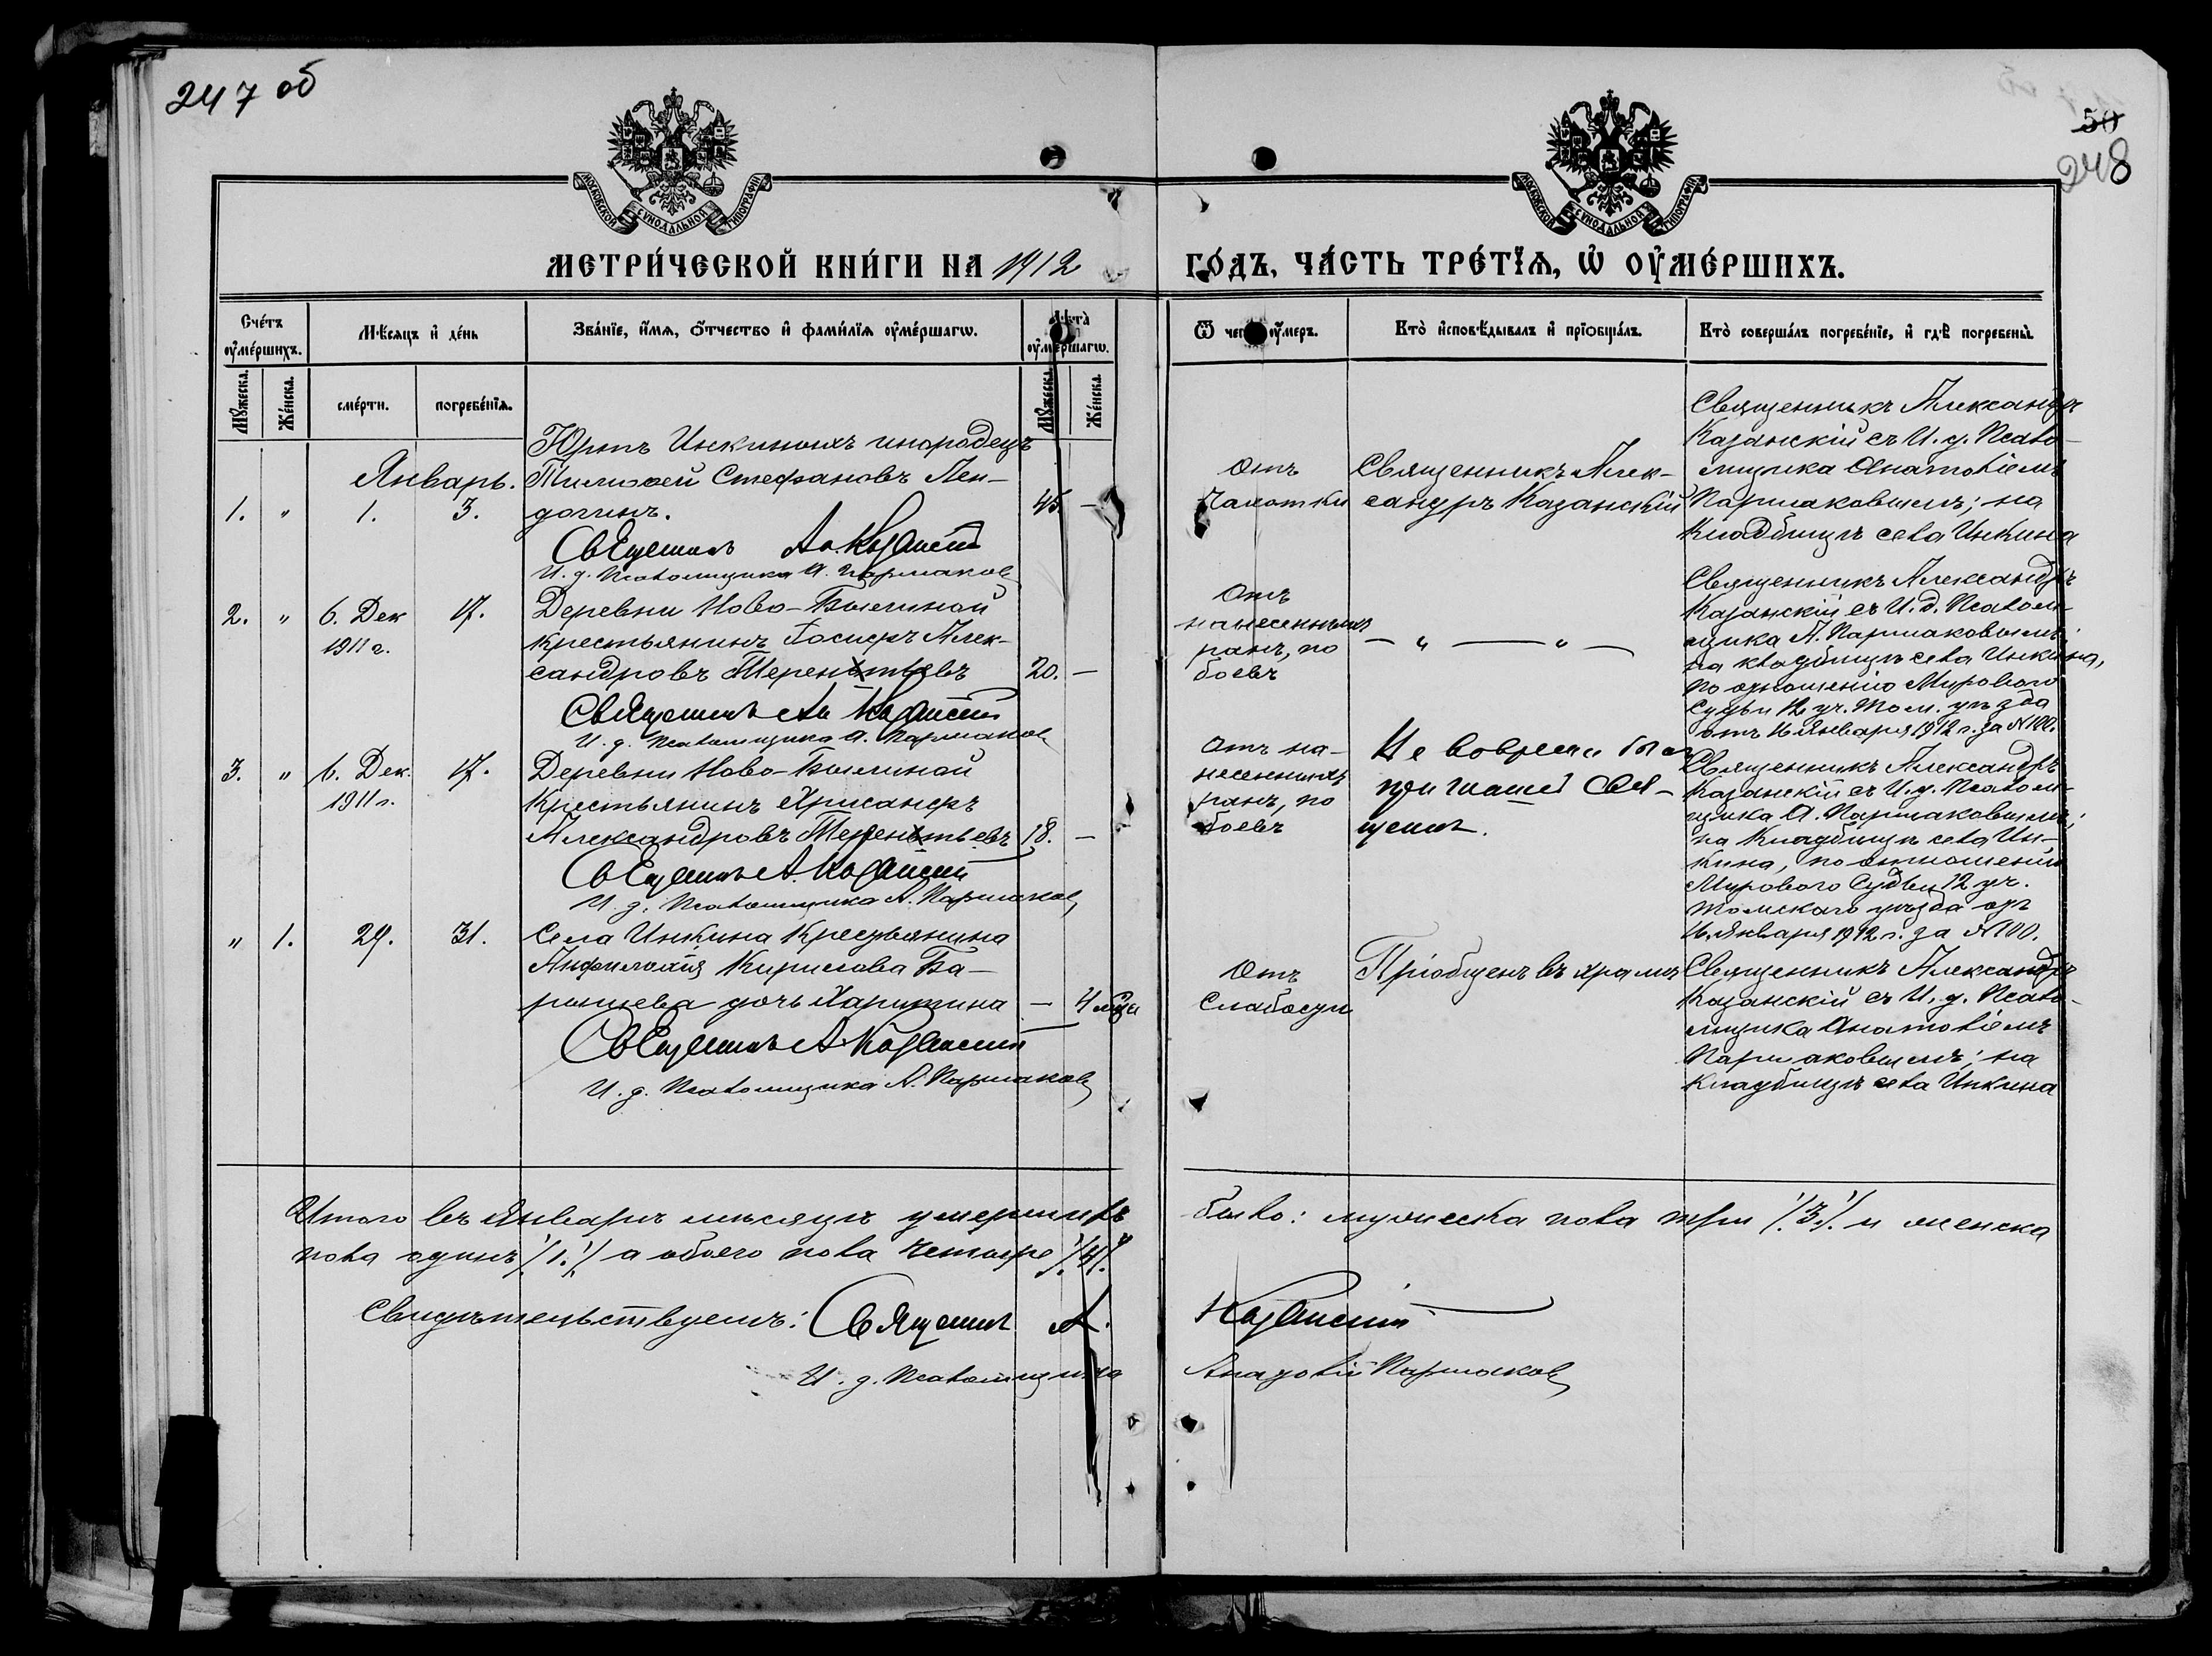 247 об
50
248
МОСКОВСКОЙ СѴНОДАЛЬНОЙ ТИПОГРАФІИ
МОСКОВСКОЙ СѴНОДАЛЬНОЙ ТИПОГРАФІИ
МЕТРИ́ЧЕСКОЙ КНИ́ГИ НА 1912 ГО́ДЪ, ЧА́СТЬ ТРЕ́ТЇѦ, Ѡ҆ ОУ҆МЕ́РШИХЪ.
Сче́тъ оу҆ме́ршихъ.
Мѣ́сяцъ и҆ де́нь
Зва́нїе, и҆́мѧ, ѻ҆́тчество и҆ фами́лїѧ оу҆ме́ршагѡ.
Лѣ́та оу҆ме́ршагѡ.
Ѿ чегѡ̀ оу҆́меръ.
Кто̀ и҆сповѣ́дывалъ и҆ прїѡбща́лъ.
Кто̀ соверша́лъ погребе́нїе, и҆ гдѣ̀ погребены̀.
Мꙋ́жеска.
Же́нска.
сме́рти.
погребе́нїѧ.
Мꙋ́жеска.
Же́нска.
Январь.
1. " 1. 3.
Юртъ Инкиныхъ инородецъ
Тимофей Стефановъ Лен-
догинъ. 45. -
Священникъ Ал. Казанскій
И. д. Псаломщика А. Паршаковъ
Отъ
Чахотки
Священникъ Алек-
сандръ Казанскій
Священникъ Александръ
Казанскій съ И. д. Псало-
мщика Анатоліемъ
Паршаковымъ; на
Кладбищѣ села Инкина
2. " 6. Дек 17.
1911 г.
Деревни Ново-
крестьянинъ Іосифъ Алек-
сандровъ Терентьевъ 20. -
Священникъ Ал. Казанскій
И. д. Псаломщика А. Паршаковъ
Отъ
нанесенныхъ
ранъ, по
боевъ
- " - " -
Священникъ Александръ
Казанскій съ И. д. Псалом-
щика А. Паршаковымъ;
на кладбищѣ села Инкина,
по отношенію Мирового
Судьи 12 уч. Том. уѣзда
отъ 16 Января 1912 г. за № 100.
3. " 6. Дек. 17.
1911 г.
Деревни Ново-
Крестьянинъ Хрисанфъ
Александровъ Терентьевъ 18. -
Священникъ А. Казанскій
И. д. Псаломщика А. Паршаковъ
Отъ на-
несенныхъ
ранъ, по
боевъ
Не вовремя был
приглашен Свя-
щенник.
Священникъ Александръ
Казанскій съ И. д. Псалом-
щика А. Паршаковымъ;
на Кладбищѣ села Ин-
кина, по отношенію
Мирового Судьи 12 уч.
Томскаго уѣзда отъ
16 Января 1912 г. за № 100.
" 1. 29. 31.
Села Инкина Крестьянина
Анфилофія Кирилова Ба-
рышева дочь Харитина - 4 мѣс.
Священникъ А. Казанскій
И. д. Псаломщика А. Паршаковъ
Отъ
Слабости
Пріобщенъ въ храмѣ
Священникъ Александръ
Казанскій съ И. д. Псало-
мщика Анатоліемъ
Паршаковымъ; на
Кладбищѣ села Инкина
Итого въ Январѣ мѣсяцѣ умершихъ было: мужеска пола три /3/ и женска
пола одинъ /1./ а обоего пола четыре /4/.
Свидѣтельствуемъ: Священникъ А. Казанскій
И. д. Псаломщика Анатолій Паршаковъ